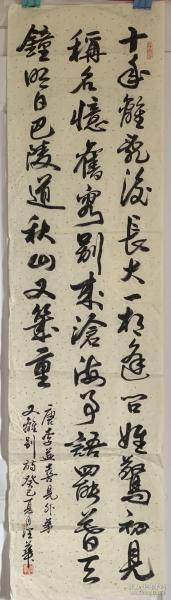 十年離亂後長大一相逢問姓驚初見
稱名憶舊容别來滄海事語罷暮天
鐘明日巴陵道秋山又幾重
唐李益喜見外弟
又離别詩癸巳夏月汪華